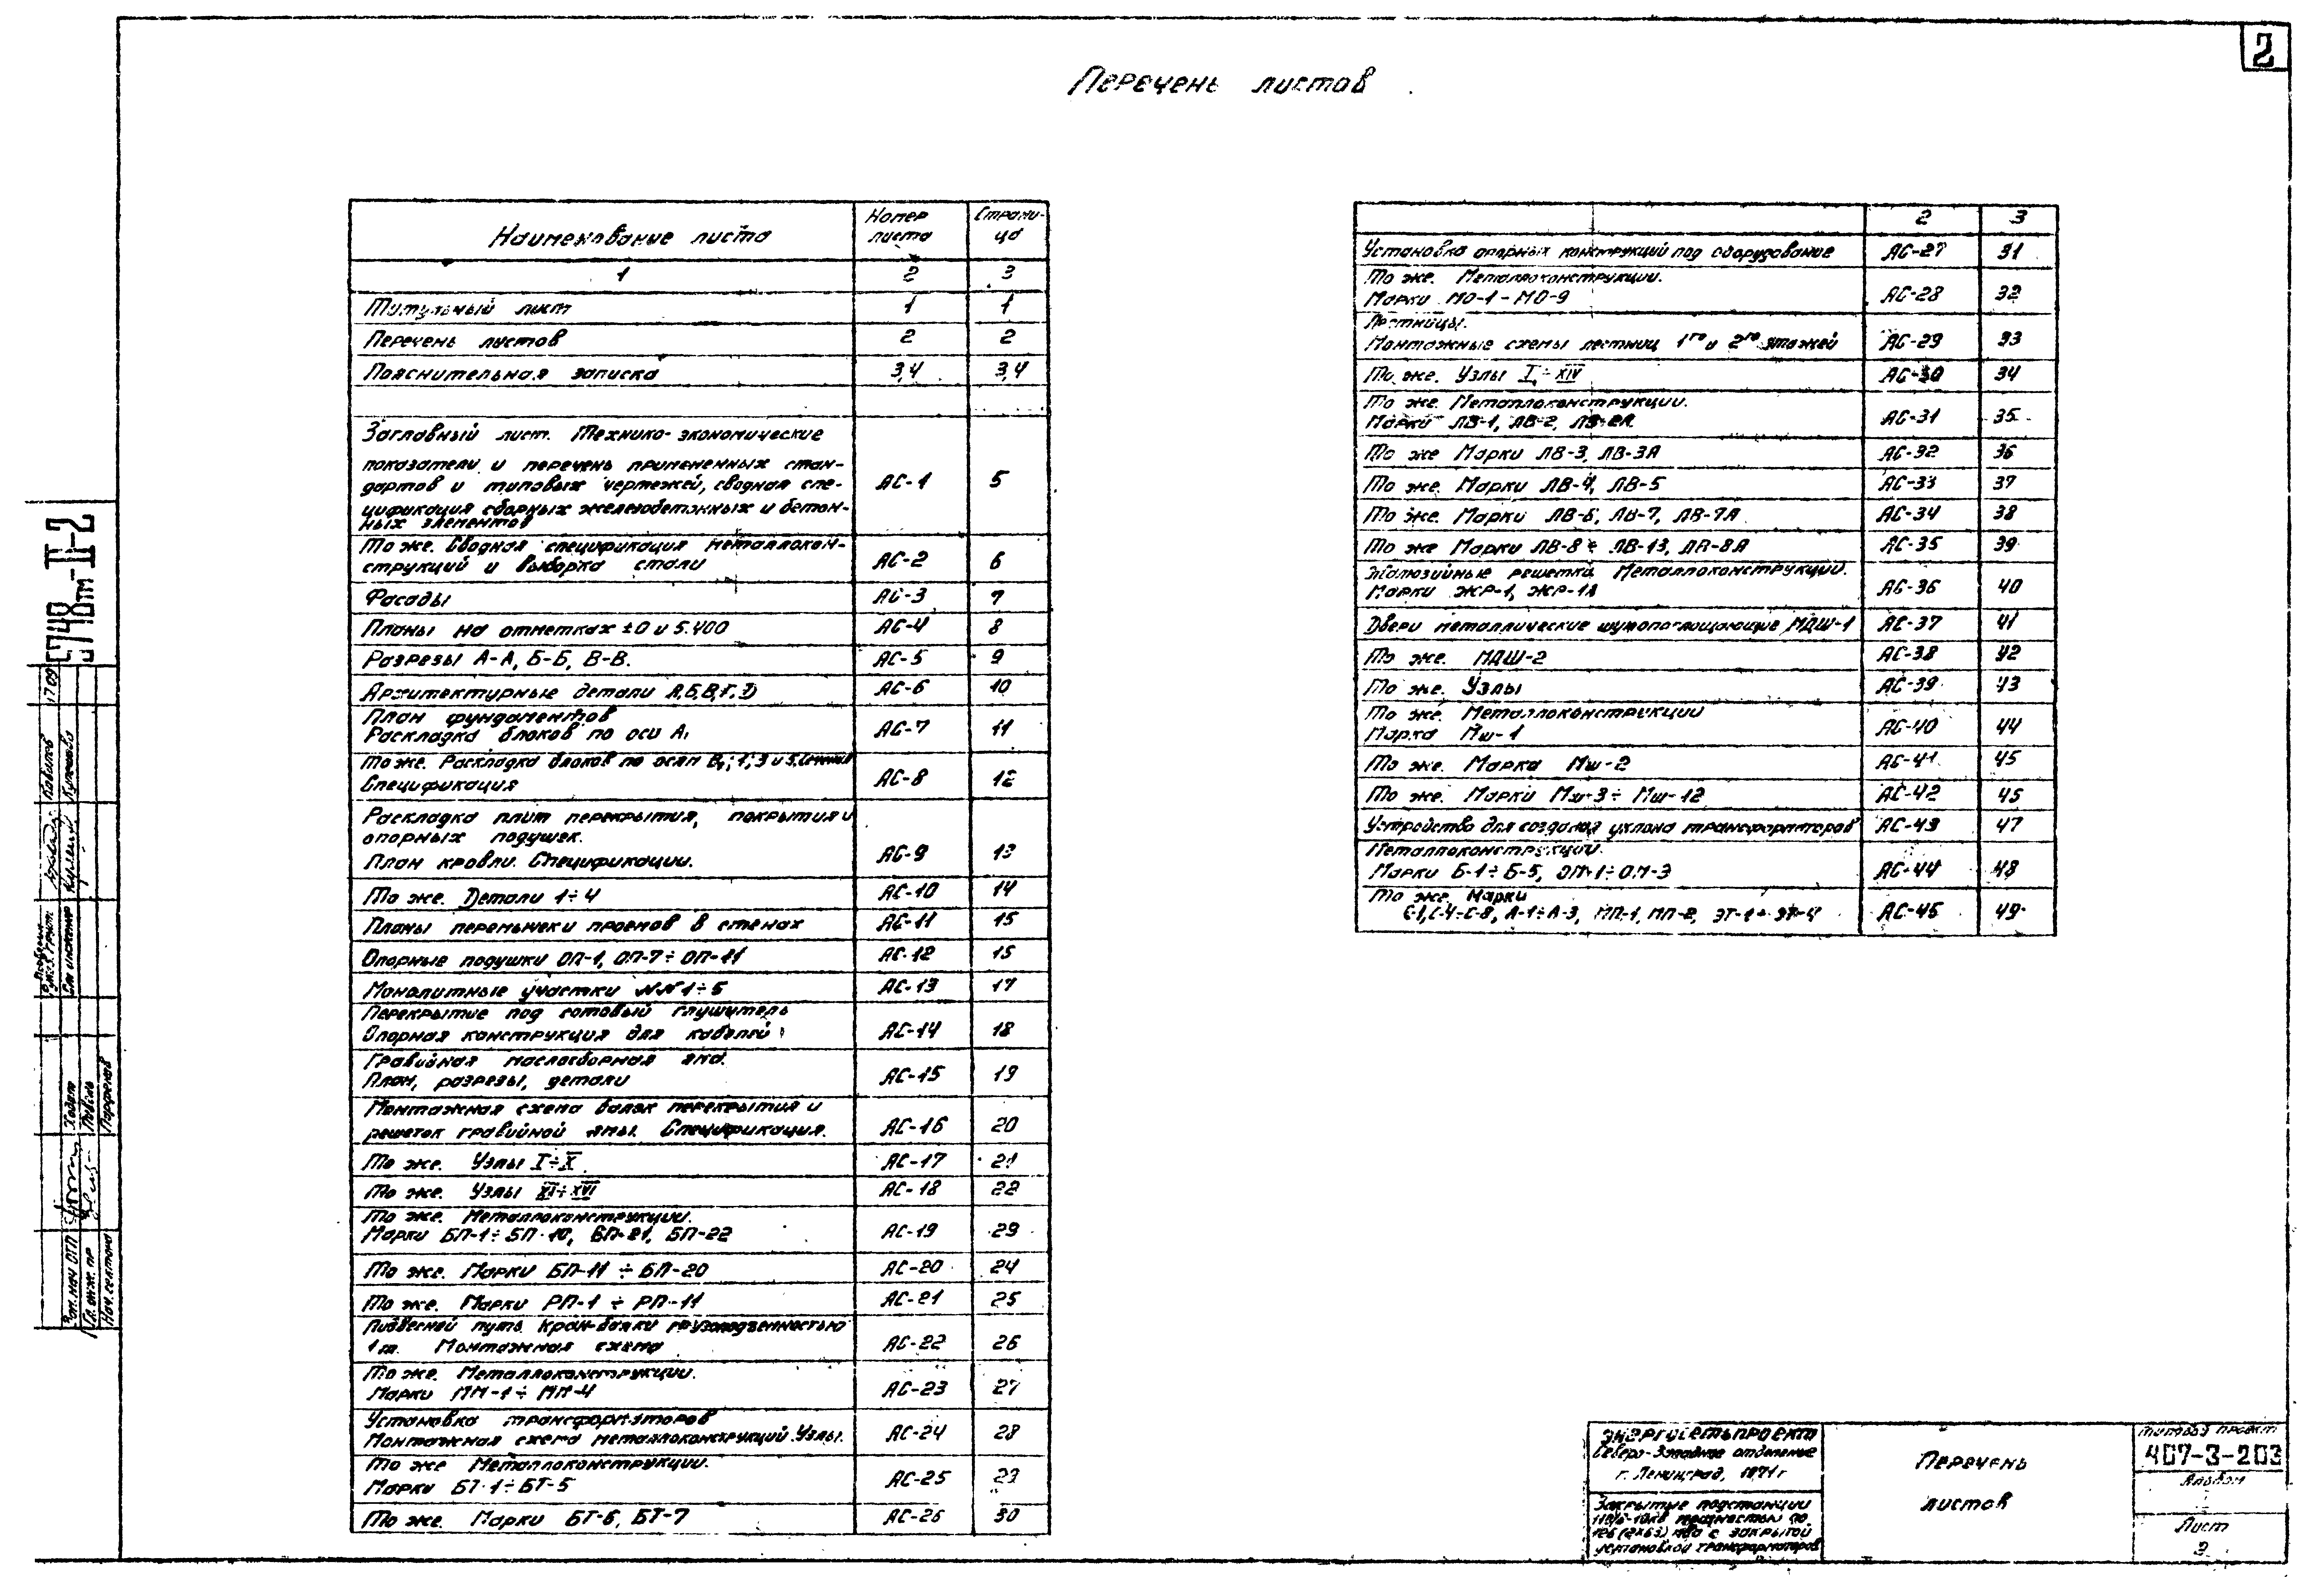 2
Перечень листов
Наименование листа
Номер листа
Страни-ца
1 2 3
Титульный лист 1 1
Перечень листов 2 2
Пояснительная записка 3,4 3,4
Заглавный лист. Технико-экономические
показатели и перечень примененных стан-
дартов и типовых чертежей, сводная спе- АС-1 5
цификация сборных железобетонных и бетон-
ных элементов
То же. Сводная спецификация металлокон-
струкций и выборка стали АС-2 6
Фасады АС-3 7
Планы на отметках ±0 и 5.400 АС-4 8
Разрезы А-А, Б-Б, В-В. АС-5 9
Архитектурные детали А,Б,В,Г,Д АС-6 10
План фундаментов
Раскладка блоков по оси А, АС-7 11
То же. Раскладка блоков по осям
Спецификация АС-8 12
Раскладка плит перекрытия, покрытия и
опорных подушек.
План кровли. Спецификации. АС-9 13
То же. Детали 1÷4 АС-10 14
Планы перемычек и проемов в стенах АС-11 15
Опорные подушки ОП-1, ОП-7÷ОП-11 АС-12 15
Монолитные участки NN1÷5 АС-13 17
Перекрытие под сотовый глушитель
Опорная конструкция для кабелей АС-14 18
Гравийная маслосборная яма.
План, разрезы, детали АС-15 19
Монтажная схема балок перекрытия и
решеток гравийной ямы. Спецификация. АС-16 20
То же. Узлы I÷X АС-17 21
То же. Узлы XI÷XVI АС-18 22
То же. Металлоконструкции.
Марки БП-1÷БП-10, БП-21, БП-22 АС-19 23
То же. Марки БП-11 ÷ БП-20 АС-20 24
То же. Марки РП-1 ÷ РП-11 АС-21 25
Подвесной путь кран-балки грузоподъемностью
1т. Монтажная схема АС-22 26
То же. Металлоконструкции.
Марки МП-1÷МП-4 АС-23 27
Установка трансформаторов
Монтажная схема металлоконструкций. Узлы. АС-24 28
То же Металлоконструкции.
Марки БТ-1÷БТ-5 АС-25 29
То же. Марки БТ-6, БТ-7 АС-26 30
2 3
Установка опорных конструкций под оборудование АС-27 31
То же. Металлоконструкции.
Марки МО-1-МО-9 АС-28 32
Лестницы.
Монтажные схемы лестниц 1го и 2го этажей АС-29 33
То же. Узлы I÷XIV АС-30 34
То же. Металлоконструкции.
Марки ЛВ-1, ЛВ-2, ЛВ-2А АС-31 35
То же Марки ЛВ-3, ЛВ-3А АС-32 36
То же. Марки ЛВ-4, ЛВ-5 АС-33 37
То же. Марки ЛВ-6, ЛВ-7, ЛВ-7А АС-34 38
То же Марки ЛВ-8÷ЛВ-13, ЛВ-8А АС-35 39
Жалюзийные решетки Металлоконструкции.
Марки ЖР-1, ЖР-1А АС-36 40
Двери металлические шумопоглощающие МДШ-1 АС-37 41
То же. МДШ-2 АС-38 42
То же. Узлы АС-39 43
То же. Металлоконструкции
Марка Мш-1 АС-40 44
То же. Марка Мш-2 АС-41 45
То же. Марки Мш-3÷Мш-12 АС-42 45
Устройство для создания уклона трансформаторов АС-43 47
Металлоконструкции.
Марки Б-1÷Б-5, ОМ-1÷ОМ-3 АС-44 48
То же. Марки
С-1,С-4÷С-8, А-1÷А-3, МП-1, МП-2, ЭТ-1÷ЭТ-4 АС-45 49
5748тм-II-2
Энергосетьпроект
Северо-Западное отделение
г. Ленинград, 1971г
Закрытые подстанции
110/6-10кв мощностью до
126 (2×63) мва с закрытой
установкой трансформаторов
Перечень
листов
Типовой проект
407-3-203
Альбом
Лист
2